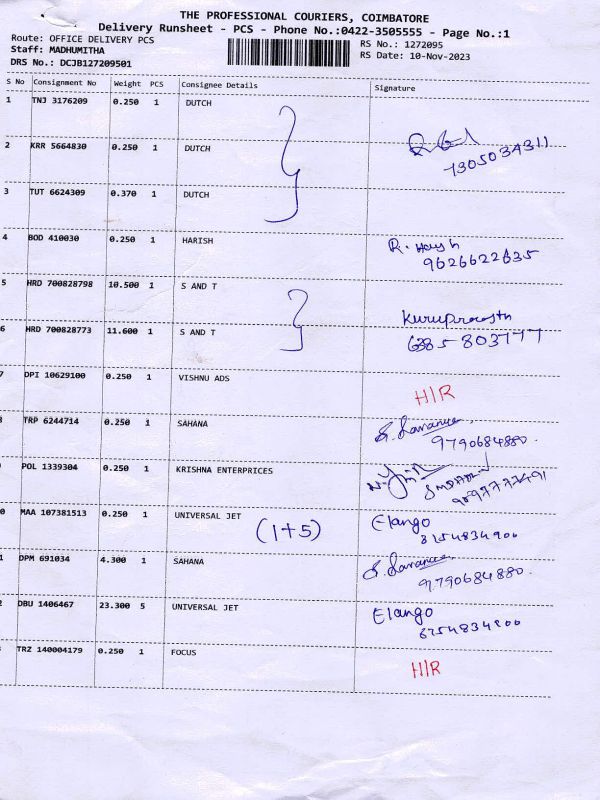 THE PROFESSIONAL COURIERS, COIMBATORE
Delivery Runsheet - PCS - Phone No.:0422-3505555 - Page No.:1
Route: OFFICE DELIVERY PCS RS No.: 1272095
Staff: MADHUMITHA RS Date: 10-Nov-2023
DRS No.: DCJB127209501
S No Consignment No Weight PCS Consignee Details Signature
1 TNJ 3176209 0.250 1 DUTCH
2 KRR 5664830 0.250 1 DUTCH
7305034311
3 TUT 6624309 0.370 1 DUTCH
4 BOD 410030 0.250 1 HARISH R.
9626622635
5 HRD 700828798 10.500 1 S AND T
6 HRD 700828773 11.600 1 S AND T 6385 803777
7 DPI 10629100 0.250 1 VISHNU ADS H/R
TRP 6244714 0.250 1 SAHANA S. Lavanya
9790684880.
POL 1339304 0.250 1 KRISHNA ENTERPRICES
0 MAA 107381513 0.250 1 UNIVERSAL JET (1+5) Elango
1 DPM 691034 4.300 1 SAHANA S. Lavanya
9790684880.
2 DBU 1406467 23.300 5 UNIVERSAL JET Elango
TRZ 140004179 0.250 1 FOCUS H/R